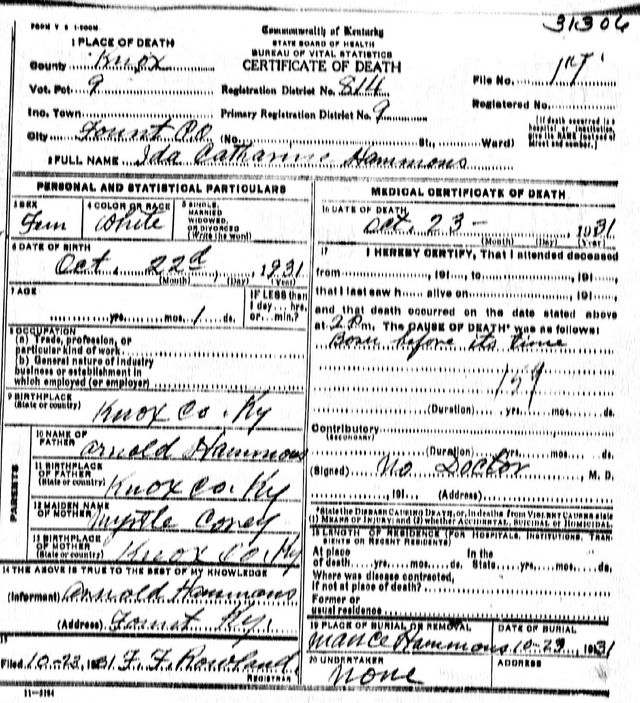 FORM V S 1-500M.
31306
Commonwealth of Kentucky
STATE BOARD OF HEALTH
BUREAU OF VITAL STATISTICS
CERTIFICATE OF DEATH
1 PLACE OF DEATH
County Knox
File No. 197
Vot. Pct 9 Registration District No. 814
Registered No.
Inc. Town Primary Registration District No. 9
City Fount P.O. (No. St., Ward)
[If death occurred in a hospital or institution, give its NAME instead of street and number.]
2 FULL NAME Ida Catharine Hammons
PERSONAL AND STATISTICAL PARTICULARS
3 SEX Fem
4 COLOR OR RACE White
5 SINGLE, MARRIED WIDOWED, OR DIVORCED (Write the word)
6 DATE OF BIRTH
Oct. 22d, 1931
(Month) (Day) (Year)
7 AGE
yrs. mos. 1 ds.
IF LESS than 1 day... hrs. or... min.?
8 OCCUPATION
(a) Trade, profession, or particular kind of work
(b) General nature of industry business or establishment in which employed (or employer)
9 BIRTHPLACE
(State or country) Knox Co. Ky
PARENTS
10 NAME OF FATHER Arnold Hammons
11 BIRTHPLACE OF FATHER
(State or country) Knox Co. Ky
12 MAIDEN NAME OF MOTHER Myrtle
13 BIRTHPLACE OF MOTHER
(State or country) Knox Co. Ky
14 THE ABOVE IS TRUE TO THE BEST OF MY KNOWLEDGE
(Informant) Arnold Hammons
(Address) Fount Ky.
15
Filed 10-23, 1931 F. F. Rowland
REGISTRAR
11—3184
MEDICAL CERTIFICATE OF DEATH
16 DATE OF DEATH
Oct. 23 - , 1931
(Month) (Day) (Year)
17 I HEREBY CERTIFY, That I attended deceased
from , 191 , to , 191 ,
that I last saw h alive on , 191 ,
and that death occurred on the date stated above
at 2 P.m. The CAUSE OF DEATH* was as follows:
Born before its time
159
(Duration) yrs. mos. ds.
Contributory
(SECONDARY)
(Duration) yrs. mos. ds.
(Signed) No Doctor, M. D.
, 191 (Address)
*State the DISEASE CAUSING DEATH, or, in deaths from VIOLENT CAUSES state
(1) MEANS OF INJURY; and (2) whether ACCIDENTAL, SUICIDAL or HOMICIDAL.
18 LENGTH OF RESIDENCE (FOR HOSPITALS, INSTITUTIONS, TRANSIENTS OR RECENT RESIDENTS)
At place of death yrs. mos. ds. In the State yrs. mos. ds.
Where was disease contracted,
if not at place of death?
Former or
usual residence
19 PLACE OF BURIAL OR REMOVAL
Mance Hammons
DATE OF BURIAL
10-23, 1931
20 UNDERTAKER
None
ADDRESS